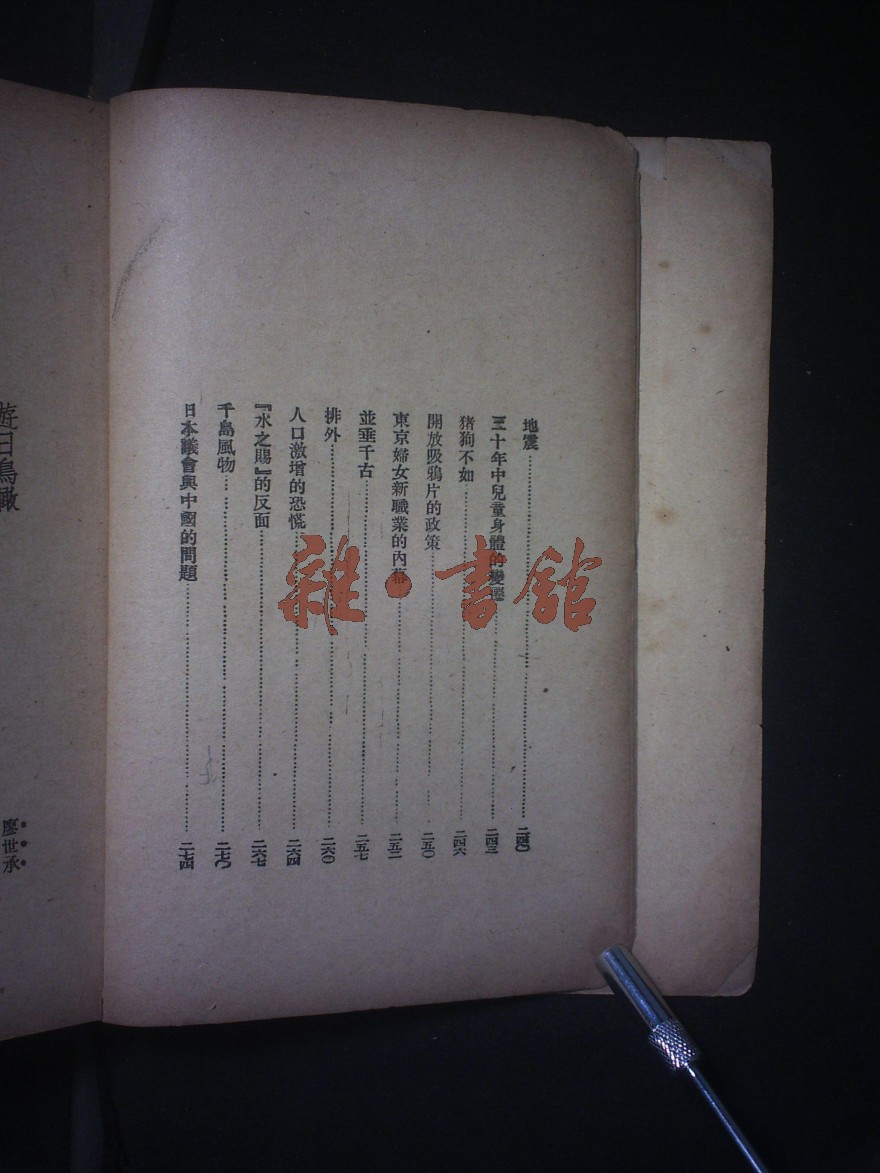 地震……二四〇
三十年中兒童身體的變遷……二四三
猪狗不如……二四六
開放吸鴉片的政策……二五〇
東京婦女新職業的內幕……二五二
並垂千古……二五七
排外……二六〇
人口激增的恐慌……二六四
『水之賜』的反面……二六七
千島風物……二七〇
日本議會與中國的問題……二七四
遊日鳥瞰
廖世承
雜·書館